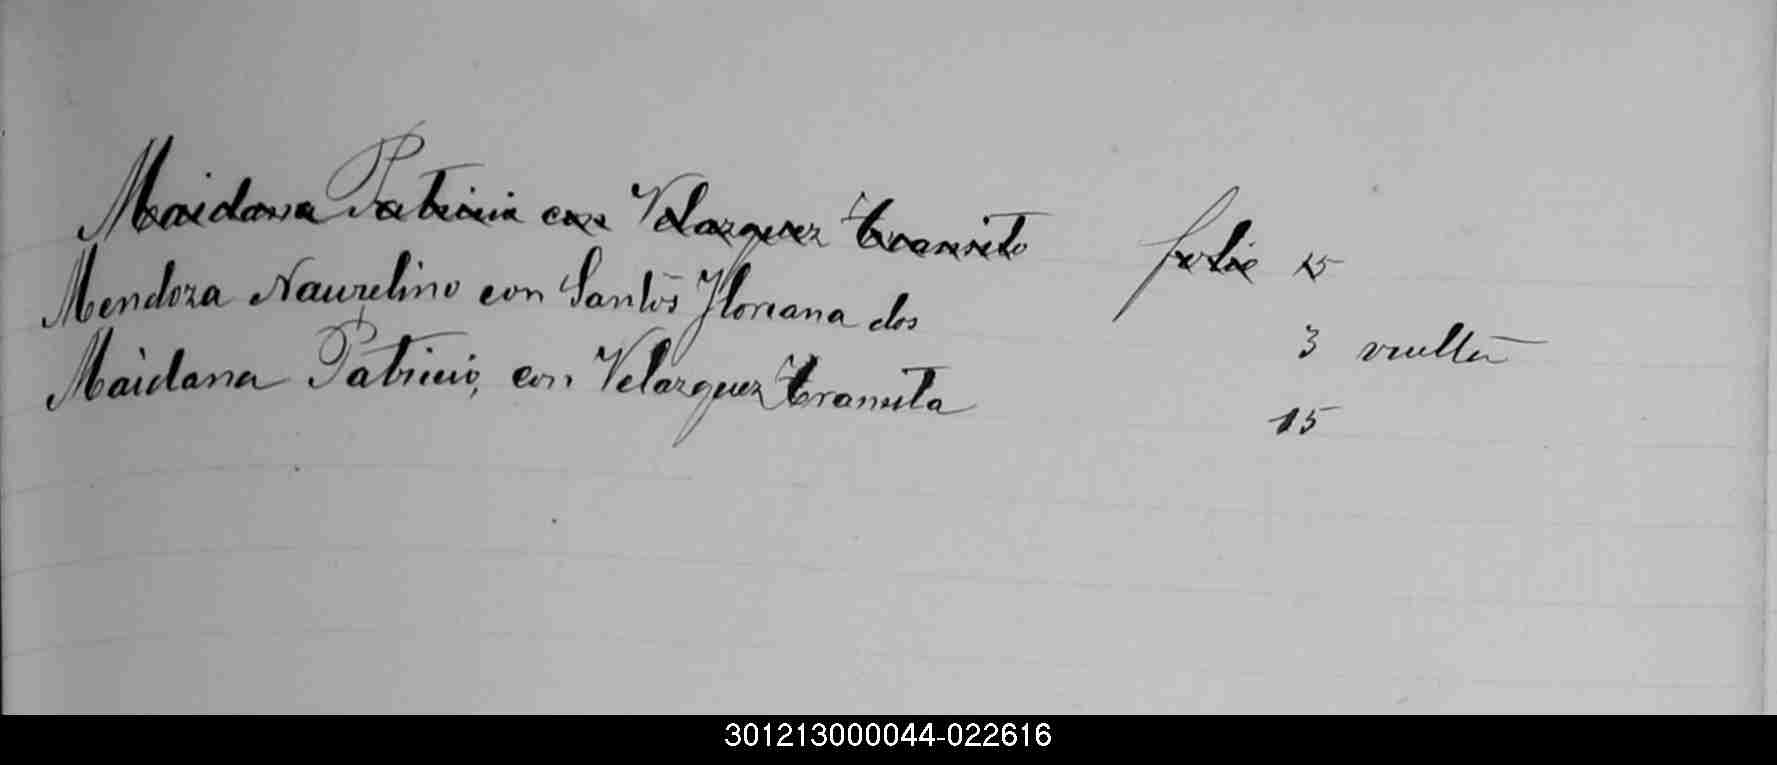 Maidana Patricio con Velazquez Transito folio 15
Mendoza Naurelino con Santos Floreana dos 3 vuelta
Maidana Patricio, con Velazquez Transita 15
301213000044-022616